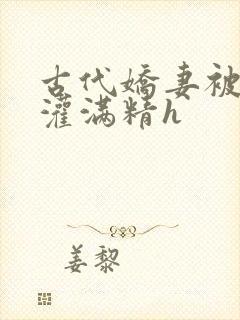 古代嬌妻被
灌滿精h
姜黎